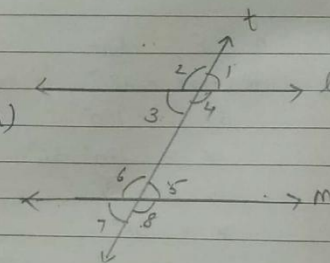 t
2 1
l
3 4
)
6 5
m
7 8